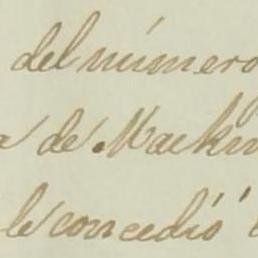 del número
a de Mackin
le concedió